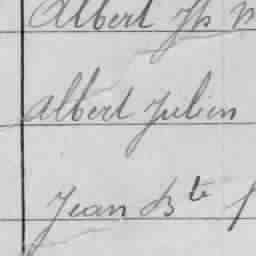 Albert Jh
Albert Julien
Jean Bte